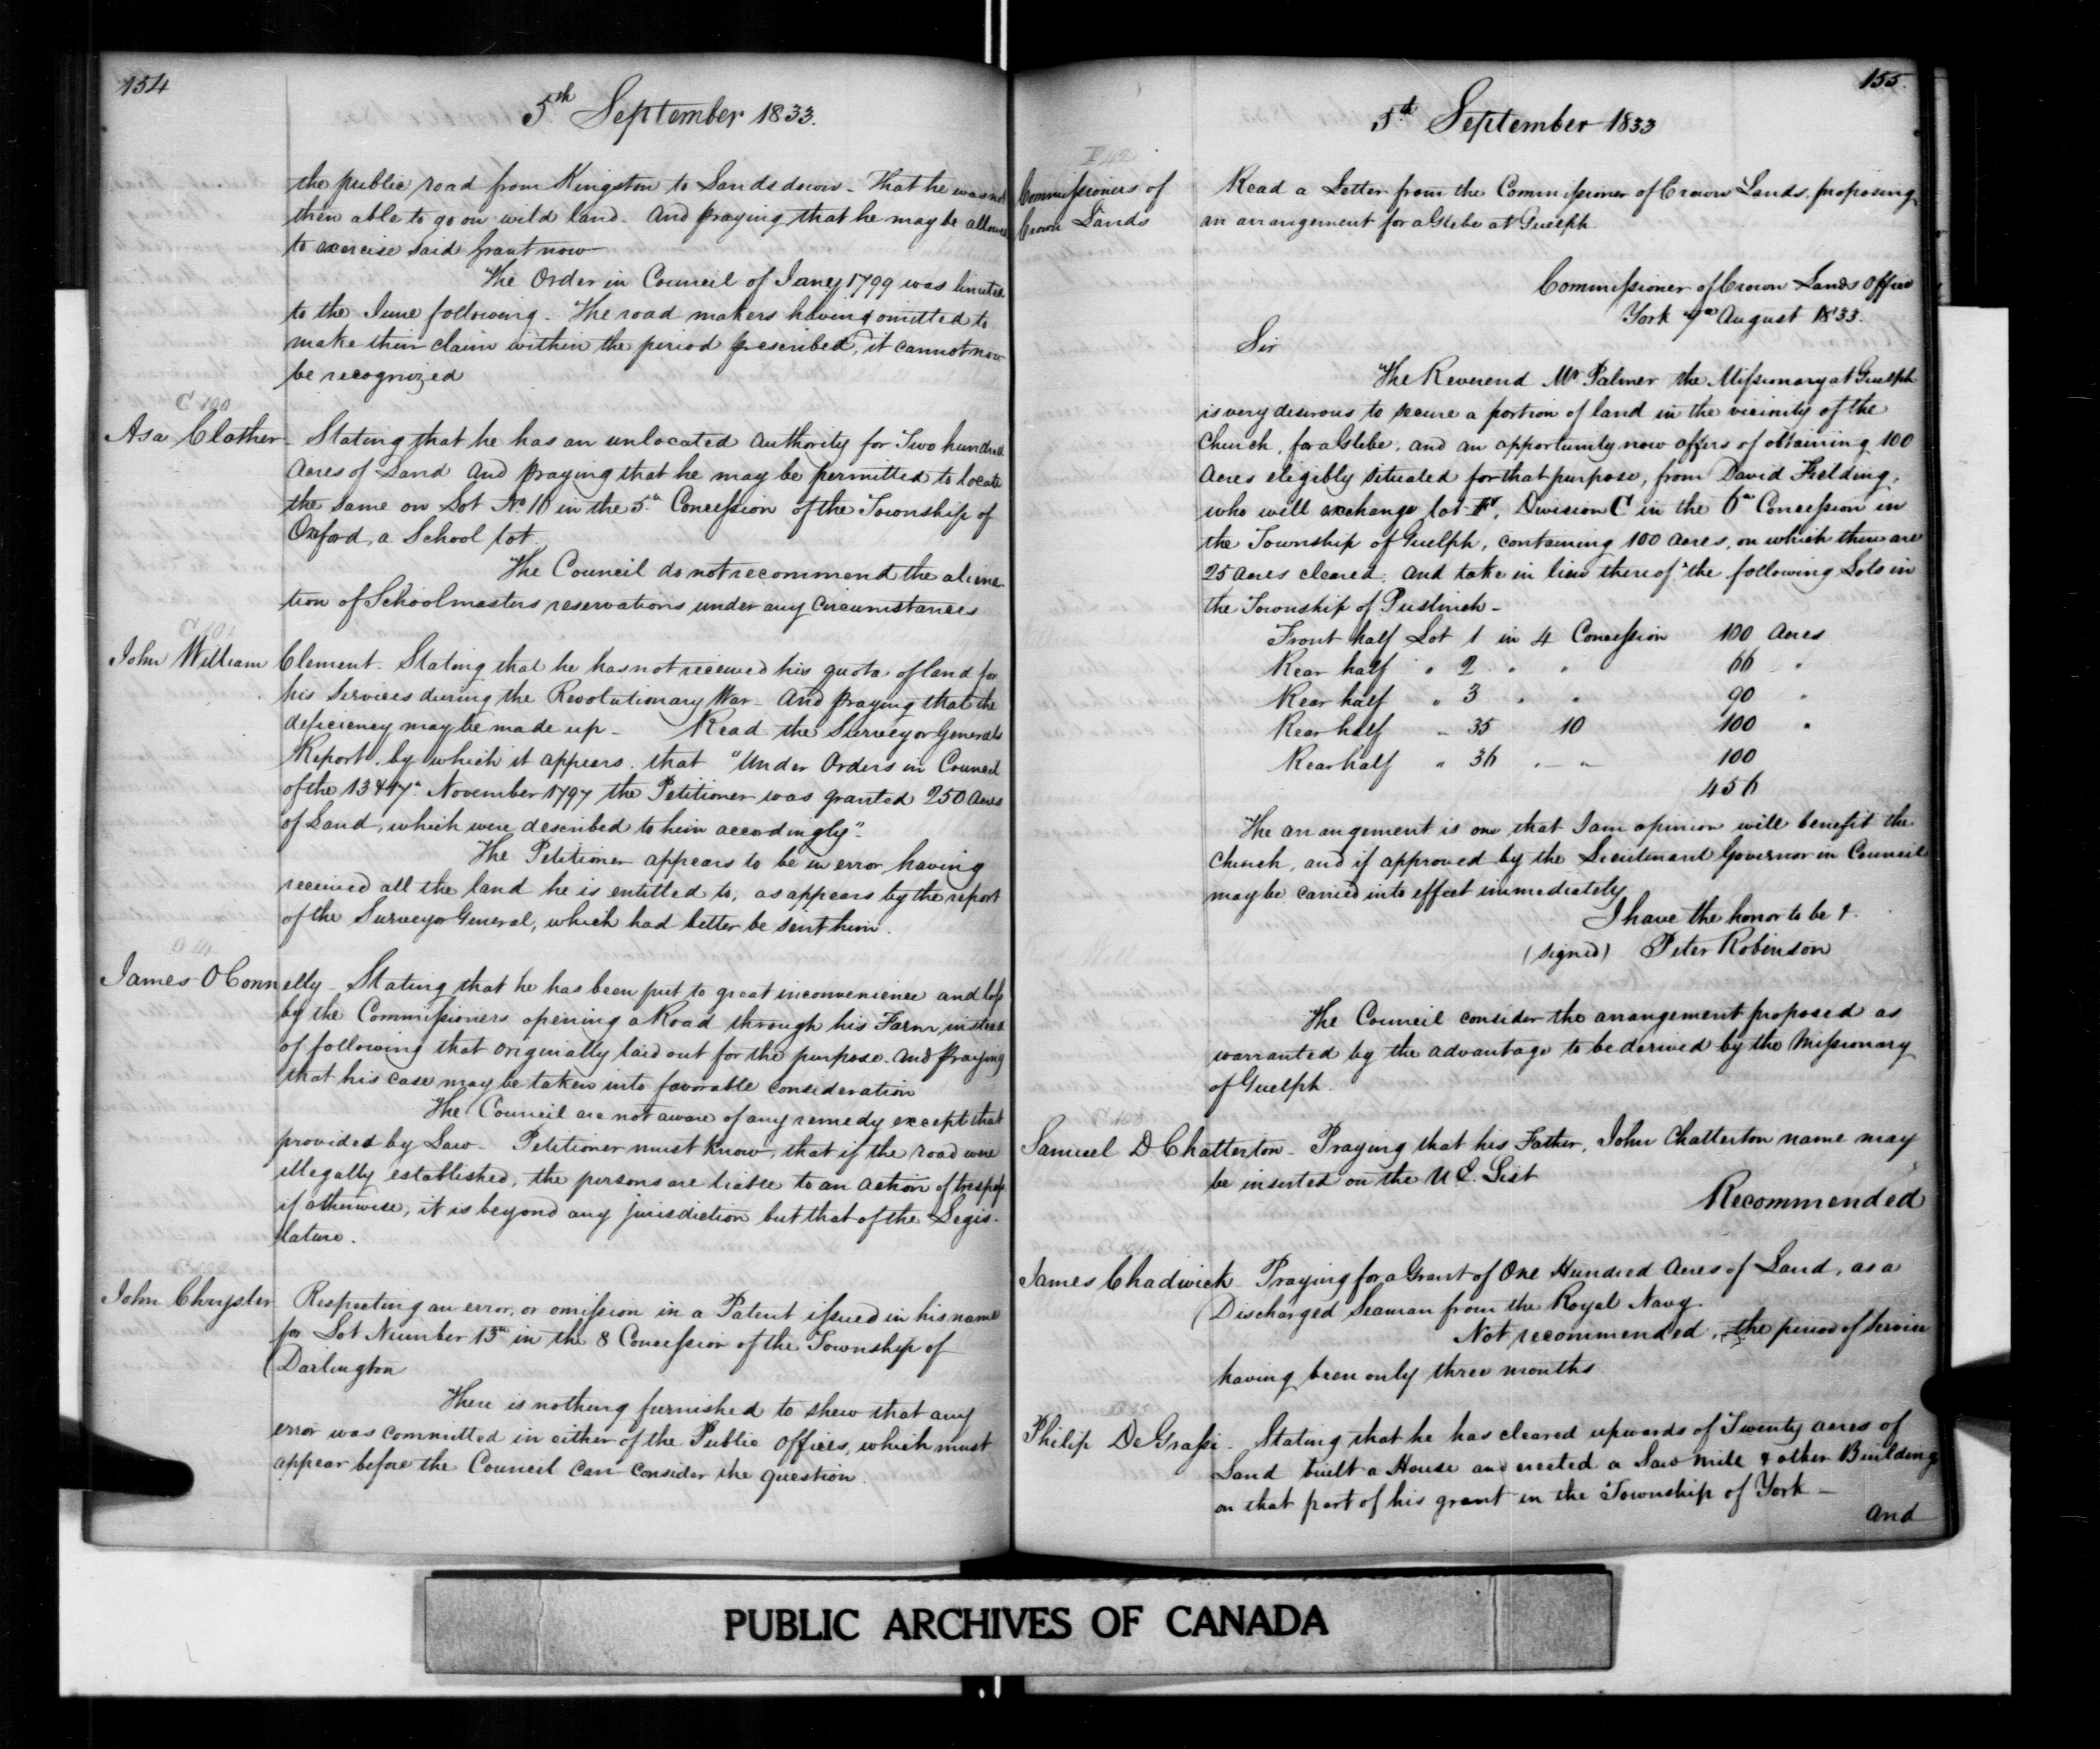 154
5th September 1833.
the public road from Kingston to Landsdown - That he was not
then able to go on wild land. And praying that he may be allowed
to exercise said Grant now
The Order in Council of Jany 1799 was limited
to the June following. The road makers having omitted to
make their claim within the period prescribed, it cannot now
be recognized
C 100
Asa Clother - Stating that he has an unlocated authority for Two hundred
Acres of Land And praying that he may be permitted to locate
the same on Lot No 10 in the 5th Concession of the Township of
Oxford, a School lot.
The Council do not recommend the aliena
tion of Schoolmasters reservations under any circumstances
C 101
John William Clement. Stating that he has not received his quota of land for
his services during the Revolutionary War - And praying that the
deficiency may be made up - Read the Surveyor Generals
Report, by which it appears, that "Under Orders in Council
of the 13 & 17th November 1797 the Petitioner was granted 250 Acres
of Land, which were described to him accordingly".
The Petitioner appears to be in error having
received all the land he is entitled to, as appears by the report
of the Surveyor General, which had better be sent him.
James OConnelly - Stating that he has been put to great inconvenience and loss
by the Commissioners opening a Road through his Farm, instead
of following that originally laid out for the purpose. And praying
that his case may be taken into favorable consideration
The Council are not aware of any remedy except that
provided by Law - Petitioner must know, that if the road were
illegally established, the persons are liable to an action of trespass
if otherwise, it is beyond any jurisdiction but that of the Legis-
lature.
John Chrysler Respecting an error, or omission in a Patent issued in his name
for Lot Number 15th in the 8 Concession of the Township of
Darlington
There is nothing furnished to shew that any
error was committed in either of the Public Offices, which must
appear before the Council can consider the question.
155.
5th September 1833
Commissioners of
Crown Lands
Read a Letter from the Commissioner of Crown Lands, proposing
an arrangement for a Glebe at Guelph.
Commissioner of Crown Lands Office
York 7th August 1833.
Sir
The Reverend Mr Palmer the Missionary at Guelph
is very desirous to secure a portion of land in the vicinity of the
Church, for a Glebe, and an opportunity now offers of obtaining 100
Acres eligibly situated for that purpose, from David Fielding,
who will exchange lot Division C in the 6th Concession in
the Township of Guelph, containing 100 Acres, on which there are
25 Acres cleared, and take in lieu thereof the following Lots in
the Township of Puslinch -
Front half Lot 1 in 4 Concession 100 Acres
Rear half " 2 " " 66 "
Rear half " 3 " " 90 "
Rear half " 35 10 100 "
Rear half " 36 " - " 100
456
The arrangement is one that I am opinion will benefit the
Church, and if approved by the Lieutenant Governor in Council
may be carried into effect immediately
I have the honor to be &.
(signed) Peter Robinson
The Council consider the arrangement proposed as
warranted by the advantage to be derived by the Missionary
of Guelph.
Samuel D Chatterton - Praying that his Father, John Chatterton name may
be inserted on the U E. List
Recommended
James Chadwick - Praying for a Grant of One Hundred Acres of Land, as a
Discharged Seaman from the Royal Navy.
Not recommended, the period of Service
having been only three months
Philip DeGrassi - Stating that he has cleared upwards of Twenty acres of
Land built a House and erected a Saw mill & other Building
on that part of his grant in the Township of York -
And
PUBLIC ARCHIVES OF CANADA